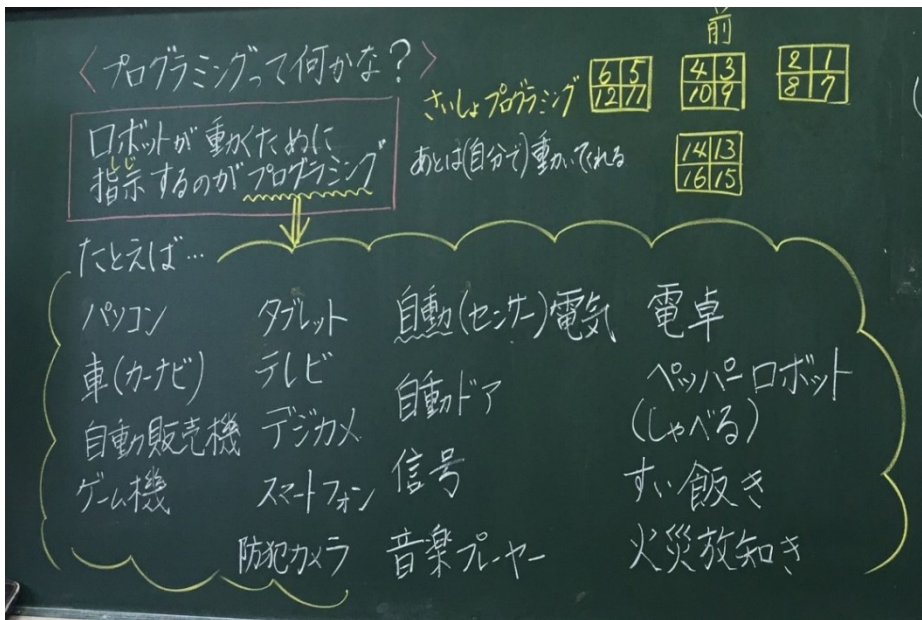 〈プログラミングって何かな?〉
ロボットが動くために
指示するのがプログラミング
しじ
さいしょプログラミング
あとは(自分で)動いてくれる
前
6 5
12 11
4 3
10 9
2 1
8 7
14 13
16 15
たとえば…
パソコン
車(カーナビ)
自動販売機
ゲーム機
タブレット
テレビ
デジカメ
スマートフォン
防犯カメラ
自動(センサー)電気
自動ドア
信号
音楽プレーヤー
電卓
ペッパーロボット
(しゃべる)
すい飯き
火災放知き